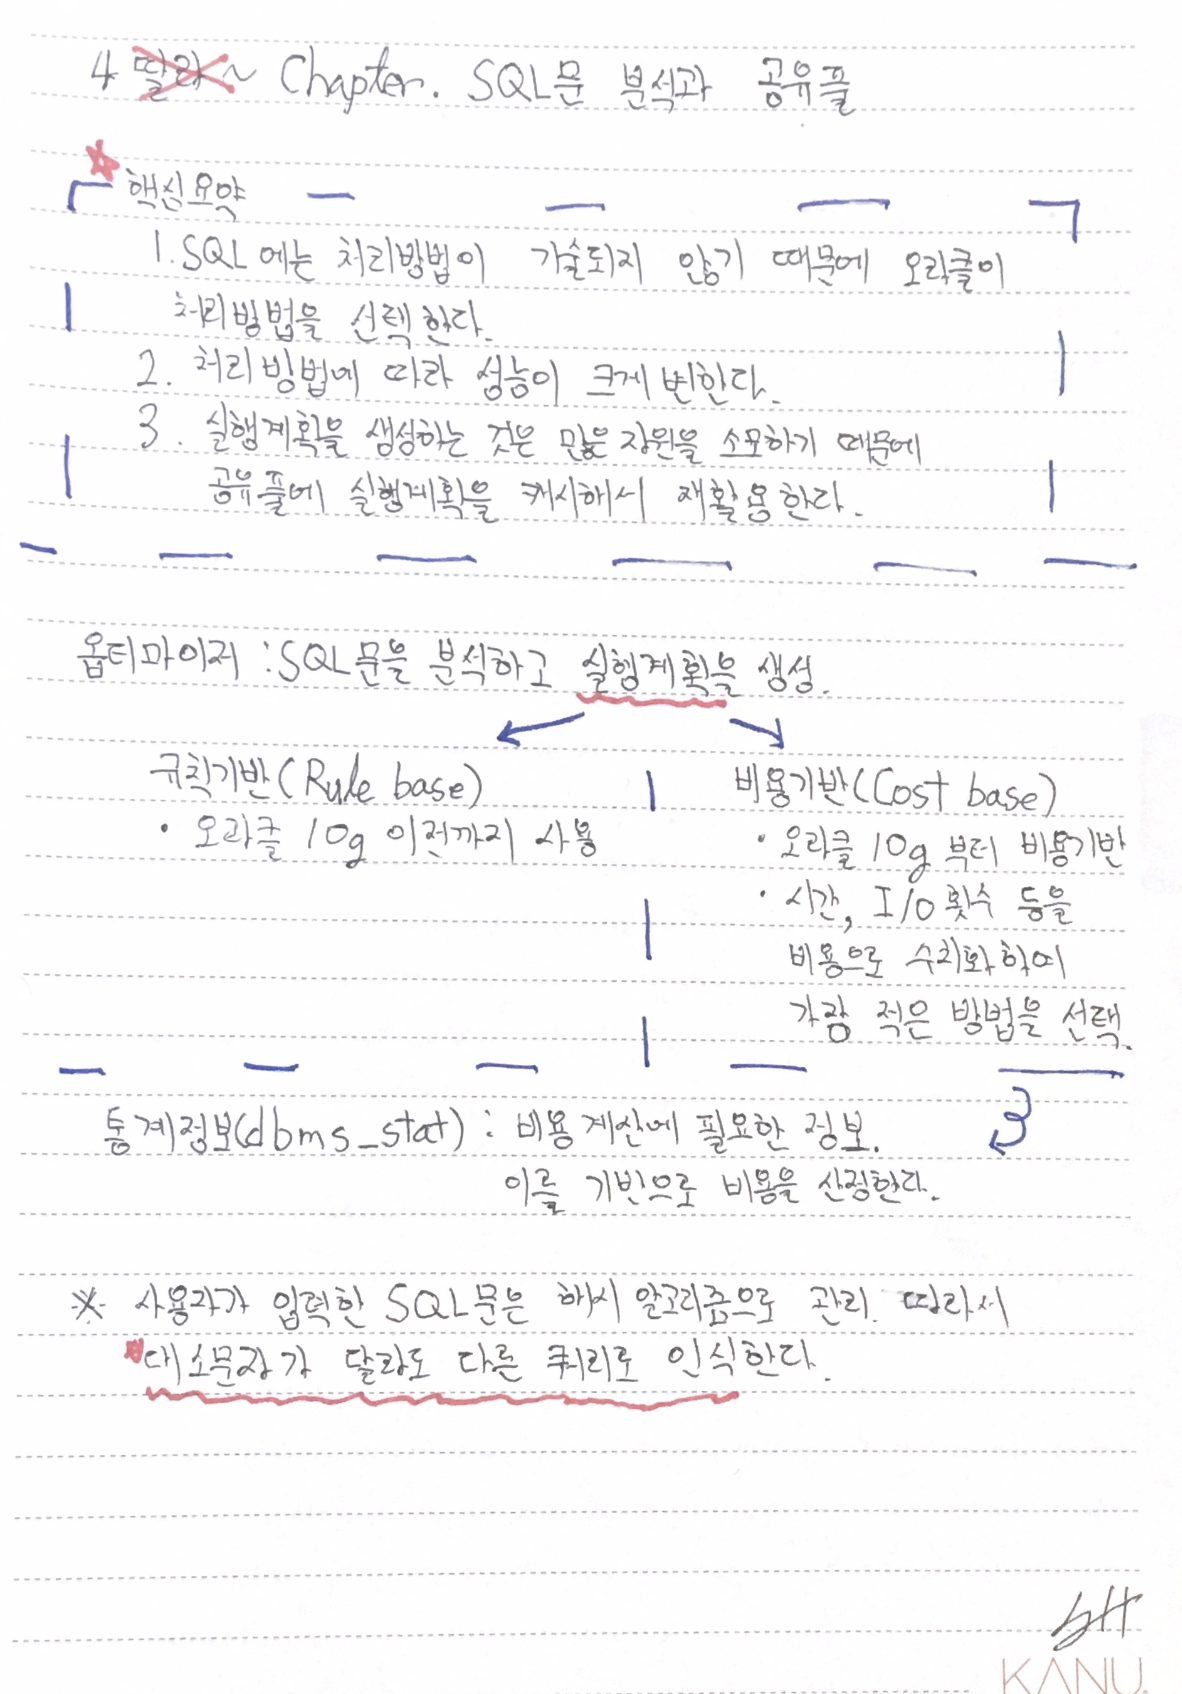 4 딸라~ Chapter. SQL문 분석과 공유풀
핵심요약
1. SQL에는 처리방법이 기술되지 않기 때문에 오라클이
처리방법을 선택한다.
2. 처리방법에 따라 성능이 크게 변한다.
3. 실행계획을 생성하는 것은 많은 자원을 소모하기 때문에
공유풀에 실행계획을 캐시해서 재활용한다.
옵티마이저 : SQL문을 분석하고 실행계획을 생성.
규칙기반(Rule base)
· 오라클 10g 이전까지 사용
비용기반(Cost base)
· 오라클 10g 부터 비용기반
· 시간, I/O횟수 등을
비용으로 수치화하여
가장 적은 방법을 선택.
통계정보(dbms_stat) : 비용계산에 필요한 정보.
이를 기반으로 비용을 산정한다.
※ 사용자가 입력한 SQL문은 해시 알고리즘으로 관리. 따라서
대소문자가 달라도 다른 쿼리로 인식한다.
KANU.